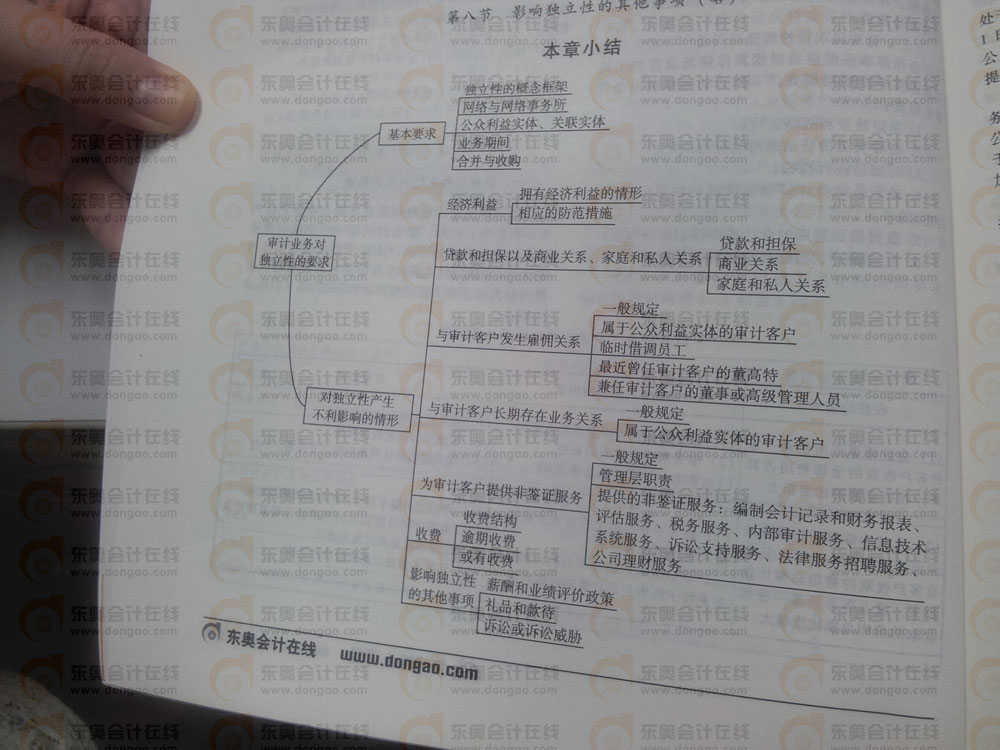 第八节 影响独立性的其他事项（略）
本章小结
独立性的概念框架
网络与网络事务所
公众利益实体、关联实体
业务期间
合并与收购
基本要求
审计业务对
独立性的要求
对独立性产生
不利影响的情形
经济利益
拥有经济利益的情形
相应的防范措施
贷款和担保以及商业关系、家庭和私人关系
贷款和担保
商业关系
家庭和私人关系
与审计客户发生雇佣关系
一般规定
属于公众利益实体的审计客户
临时借调员工
最近曾任审计客户的董高特
兼任审计客户的董事或高级管理人员
与审计客户长期存在业务关系
一般规定
属于公众利益实体的审计客户
为审计客户提供非鉴证服务
一般规定
管理层职责
提供的非鉴证服务：编制会计记录和财务报表、
评估服务、税务服务、内部审计服务、信息技术
系统服务、诉讼支持服务、法律服务招聘服务、
公司理财服务
收费
收费结构
逾期收费
或有收费
影响独立性
的其他事项
薪酬和业绩评价政策
礼品和款待
诉讼或诉讼威胁
东奥会计在线 www.dongao.com
处
1
公
提
务
公